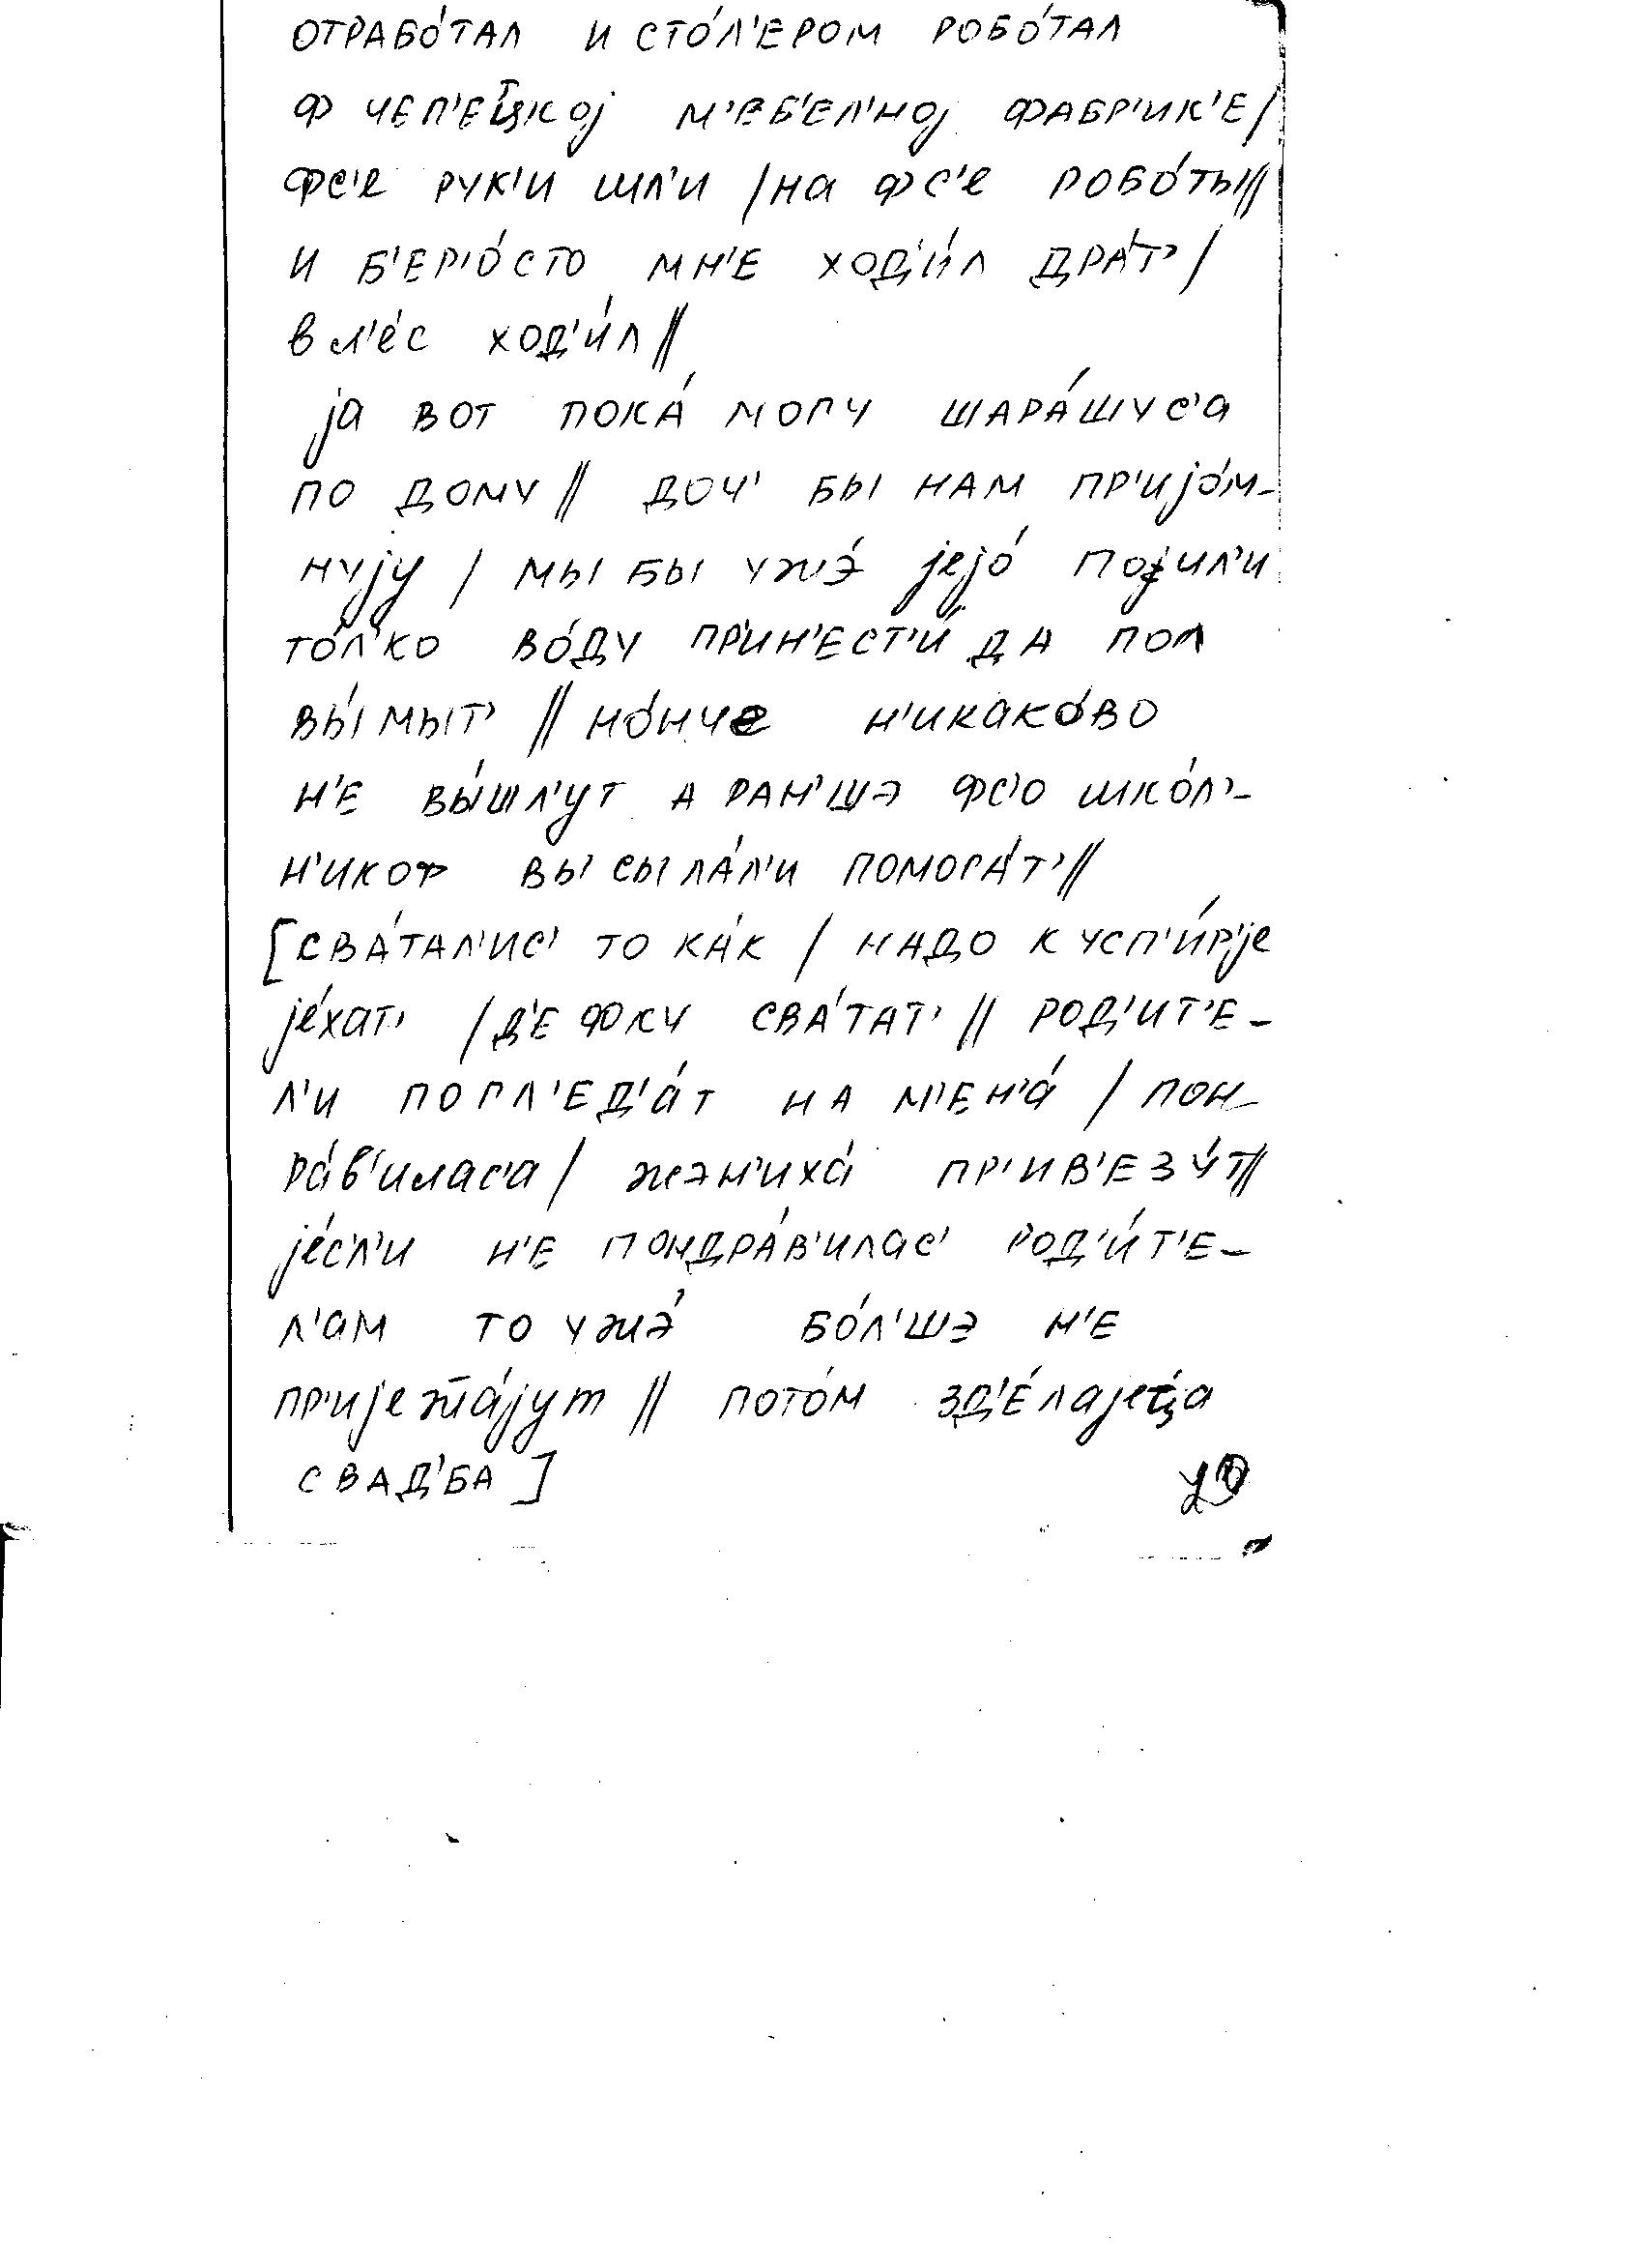 отрабо́тал и сто́л'ером робо́тал
ф чеп'ецкој м'еб'ел'ној фабр'ик'е/
фс'е рук'и шл'и /на фс'е робо́ты//
и б'ер'о́сто мн'е ход'и́л дра́т'/
в л'е́с ход'и́л//
ја вот пока́ могу шара́шус'а
по дому// доч' бы нам пр'ијо́м-
нују / мы бы ужэ́ јејо́
то́л'ко во́ду пр'ин'ест'и́ да пол
вы́мыт' // но́нче н'икако́во
н'е вы́шл'ут а ран'шэ фс'о шко́л'-
н'икоф высыла́л'и помога́т'//
[сва́тал'ис' то ка́к / надо к усп'и́р'је
је́хат' /д'ефку сва́тат'// род'ит'е-
л'и погл'ед'а́т на м'ен'а́ / пон-
ра́в'илас'а/ жэн'иха́ пр'ив'езу́т//
је́сл'и н'е пондра́в'илас' род'и́т'е-
л'ам то ужэ́ бо́л'шэ н'е
// пото́м зд'е́лајеца
свад'ба]